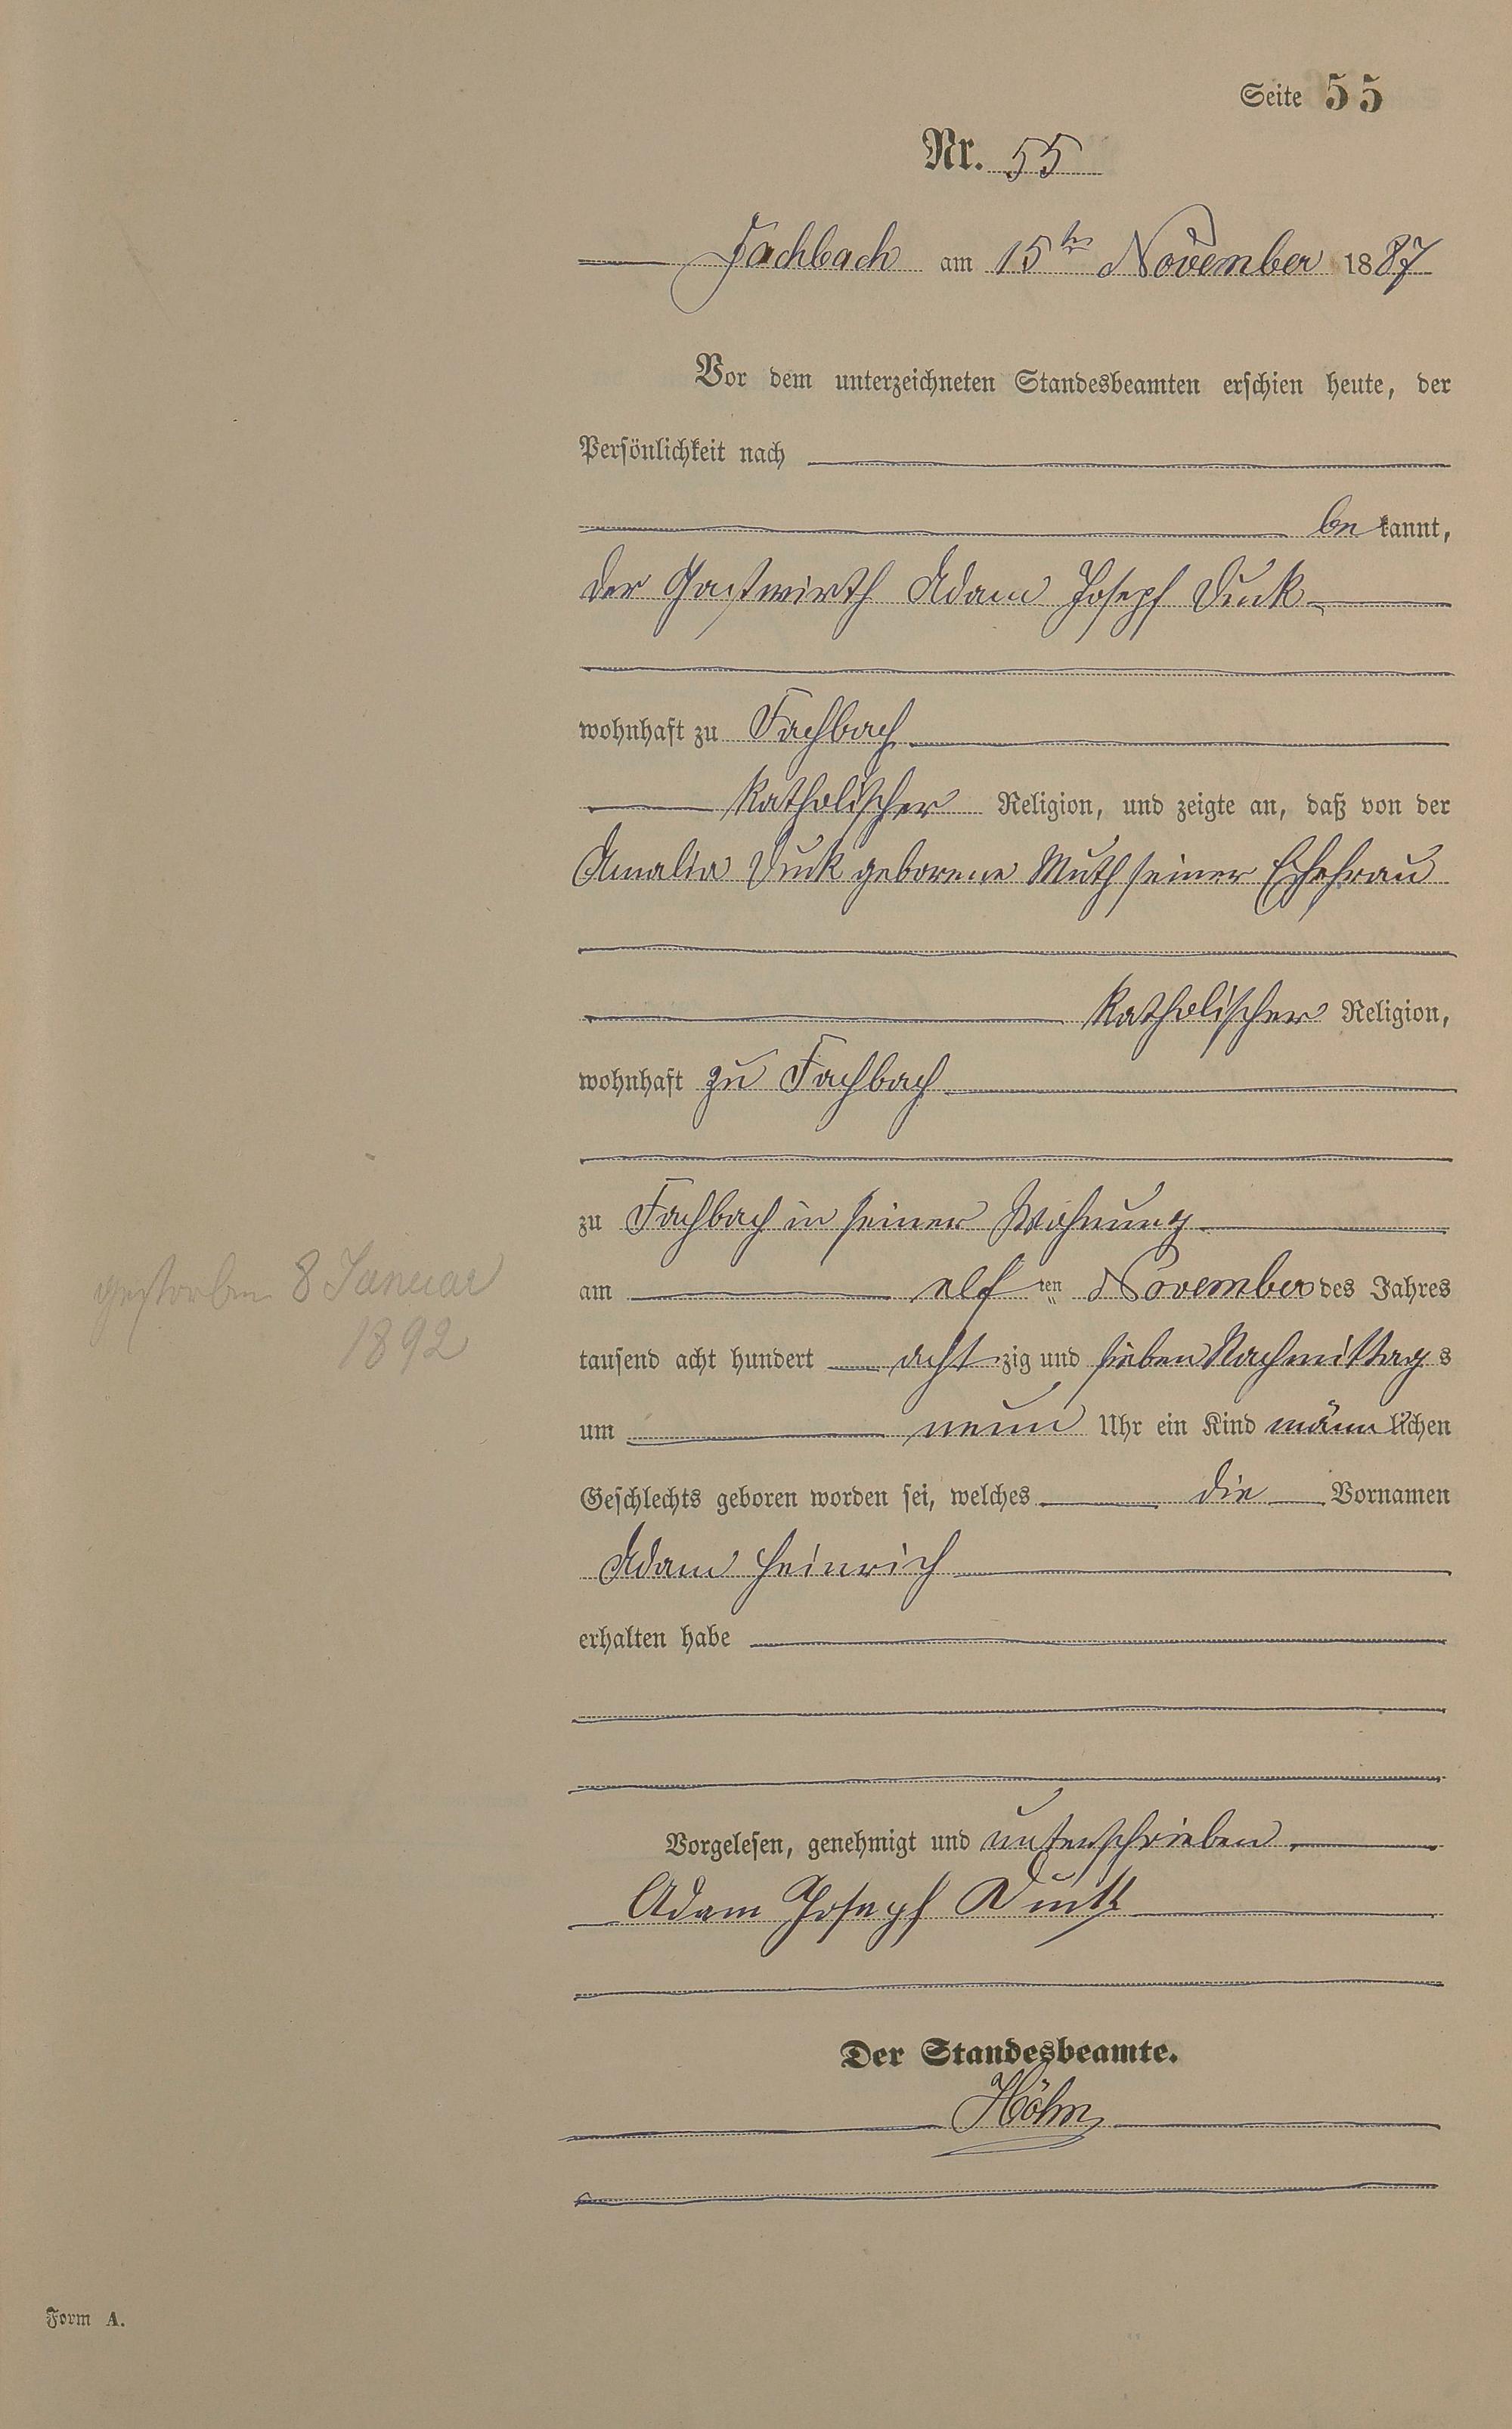 Seite 55
Nr. 55
Fachbach am 15ten November 1887
Vor dem unterzeichneten Standesbeamten erschien heute, der
Persönlichkeit nach
be kannt,
der Gastwirth Adam Joseph
wohnhaft zu Fachbach
katholischer Religion, und zeigte an, daß von der
Amalia geborene Muth seiner Ehefrau
katholischer Religion,
wohnhaft zu Fachbach
zu Fachbach in seiner Wohnung
gestorben 8 Januar
1892
am elf ten November des Jahres
tausend acht hundert acht zig und sieben Nachmittag s
um neun Uhr ein Kind männ lichen
Geschlechts geboren worden sei, welches die Vornamen
Adam Heinrich
erhalten habe
Vorgelesen, genehmigt und unterschrieben.
Adam Joseph
Der Standesbeamte.
Höhn
Form A.